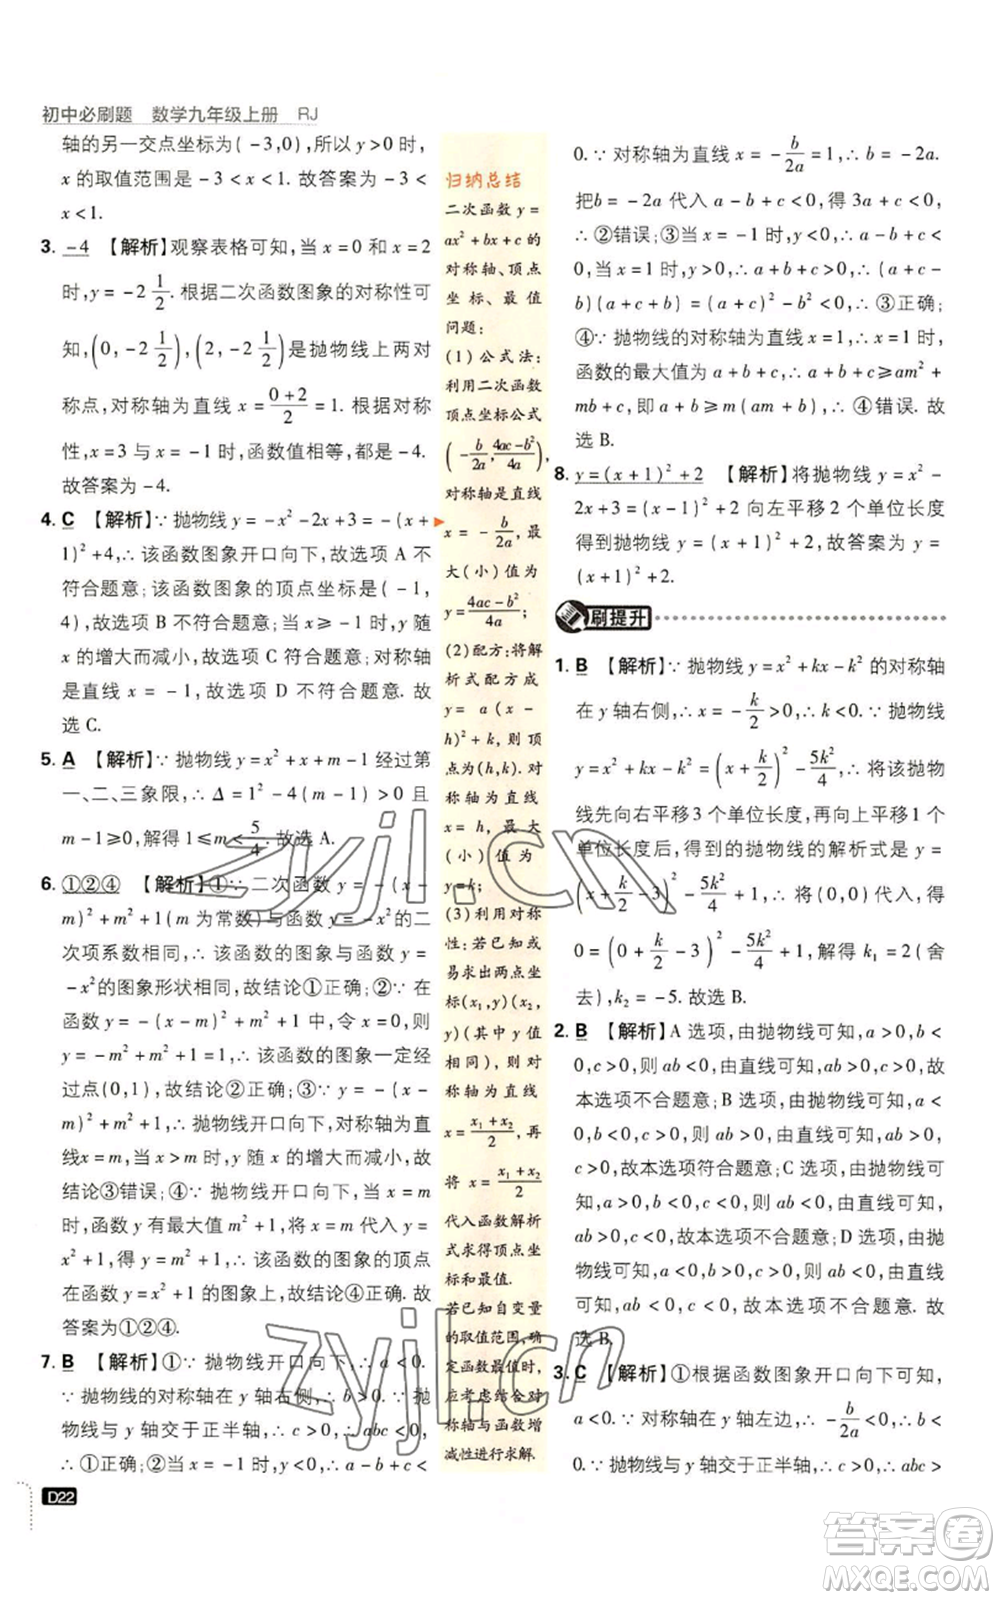 初中必刷题 数学九年级上册 RJ
轴的另一交点坐标为(-3,0),所以 y>0 时,
x 的取值范围是 -3<x<1. 故答案为 -3<
x<1.
3. -4 【解析】观察表格可知,当 x=0 和 x=2
时,y=-2 1/2. 根据二次函数图象的对称性可
知,(0,-2 1/2),(2,-2 1/2)是抛物线上两对
称点,对称轴为直线 x=(0+2)/2=1. 根据对称
性,x=3 与 x=-1 时,函数值相等,都是-4.
故答案为-4.
4. C 【解析】∵ 抛物线 y=-x²-2x+3=-(x+
1)²+4,∴ 该函数图象开口向下,故选项 A 不
符合题意;该函数图象的顶点坐标是(-1,
4),故选项 B 不符合题意;当 x>-1 时,y 随 x
的增大而减小,故选项 C 符合题意;对称轴
是直线 x=-1,故选项 D 不符合题意. 故
选 C.
5. A 【解析】∵ 抛物线 y=x²+x+m-1 经过第
一、二、三象限,∴ Δ=1²-4(m-1)>0 且
m-1≥0,解得 1≤m<5/4. 故选 A.
6. ①②④ 【解析】①∵ 二次函数 y=-(x-
m)²+m²+1(m 为常数)与函数 y=-x² 的二
次项系数相同,∴ 该函数的图象与函数 y=
-x²的图象形状相同,故结论①正确;②∵ 在
函数 y=-(x-m)²+m²+1 中,令 x=0,则
y=-m²+m²+1=1,∴ 该函数的图象一定经
过点(0,1),故结论②正确;③∵ y=-(x-
m)²+m²+1,∴ 抛物线开口向下,对称轴为直
线x=m,当 x>m 时,y 随 x 的增大而减小,故
结论③错误;④∵ 抛物线开口向下,当 x=m
时,函数 y 有最大值 m²+1,将 x=m 代入 y=
x²+1,得 y=m²+1,∴ 该函数的图象的顶点
在函数 y=x²+1 的图象上,故结论④正确. 故
答案为①②④.
7. B 【解析】①∵ 抛物线开口向下,∴ a<0.
∵ 抛物线的对称轴在y轴右侧,∴ b>0. ∵ 抛
物线与 y 轴交于正半轴,∴ c>0,∴ abc<
0,∴ ①错误;②∵ 当 x=-1 时,y<0,∴ a-b+c<
D22
归纳总结
二次函数 y=
ax²+bx+c 的
对称轴、顶点
坐标、最值
问题:
(1)公式法:
利用二次函数
顶点坐标公式
(-b/2a,(4ac-b²)/4a),
对称轴是直线
x=-b/2a,最
大(小)值为
y=(4ac-b²)/4a;
(2)配方:将解
析式配方成
y=a(x-
h)²+k,则顶
点为(h,k).对
称轴为直线
x=h,最大
(小)值为
y=k.
(3)利用对称
性:若已知或
易求出两点坐
标(x₁,y)(x₂,
y)(其中 y 值
相同),则对
称轴为直线
x=(x₁+x₂)/2,再
将 x=(x₁+x₂)/2
代入函数解析
式求得顶点坐
标和最值.
若已知自变量
的取值范围,确
定函数最值时,
应考虑结合对
称轴与函数增
减性进行求解.
0. ∵ 对称轴为直线 x=-b/2a=1,∴ b=-2a.
把b=-2a 代入 a-b+c<0,得 3a+c<0,
∴ ②错误;③当 x=1 时,a+b+c>0,当
x=-1 时,y<0,∴ a-b+c<0,∴ (a+c-
b)(a+c+b)=(a+c)²-b²<0,∴ ③正确;
④∵ 抛物线的对称轴为直线 x=1,∴ x=1 时,
函数的最大值为 a+b+c,∴ a+b+c≥am²+
mb+c,即 a+b≥m(am+b),∴ ④错误. 故
选 B.
8. y=(x+1)²+2 【解析】将抛物线 y=x²-
2x+3=(x-1)²+2 向左平移 2 个单位长度
得到抛物线 y=(x+1)²+2,故答案为 y=
(x+1)²+2.
刷提升
1. B 【解析】∵ 抛物线 y=x²+kx-k² 的对称轴
在 y 轴右侧,∴ x=-k/2>0,∴ k<0. ∵ 抛物线
y=x²+kx-k²=(x+k/2)²-5k²/4,∴ 将该抛物
线先向右平移3 个单位长度,再向上平移1 个
单位长度后,得到的抛物线的解析式是 y=
(x+k/2-3)²-5k²/4+1,∴ 将(0,0)代入,得
0=(0+k/2-3)²-5k²/4+1,解得 k₁=2(舍
去),k₂=-5. 故选 B.
2. B 【解析】A 选项,由抛物线可知,a>0,b<
0,c>0,则 ab<0,由直线可知,ab<0,a<0,故
本选项不合题意;B 选项,由抛物线可知,a<
0,b<0,c>0,则 ab>0,由直线可知,ab>0,
c>0,故本选项符合题意;C 选项,由抛物线可
知,a<0,b>0,c>0,则 ab<0,由直线可知,
ab<0,c<0,故本选项不合题意;D 选项,由抛
物线可知,a<0,b<0,c>0,则ab>0,由直线
可知,ab<0,c>0,故本选项不合题意. 故
选 B.
3. C 【解析】①根据函数图象开口向下可知,
a<0. ∵ 对称轴在 y 轴左边,∴ -b/2a<0,∴ b<
0. ∵ 抛物线与 y 轴交于正半轴,∴ c>0,∴ abc>
zyjl.cn
zyjl.cn
答案圈
MXQE.COM